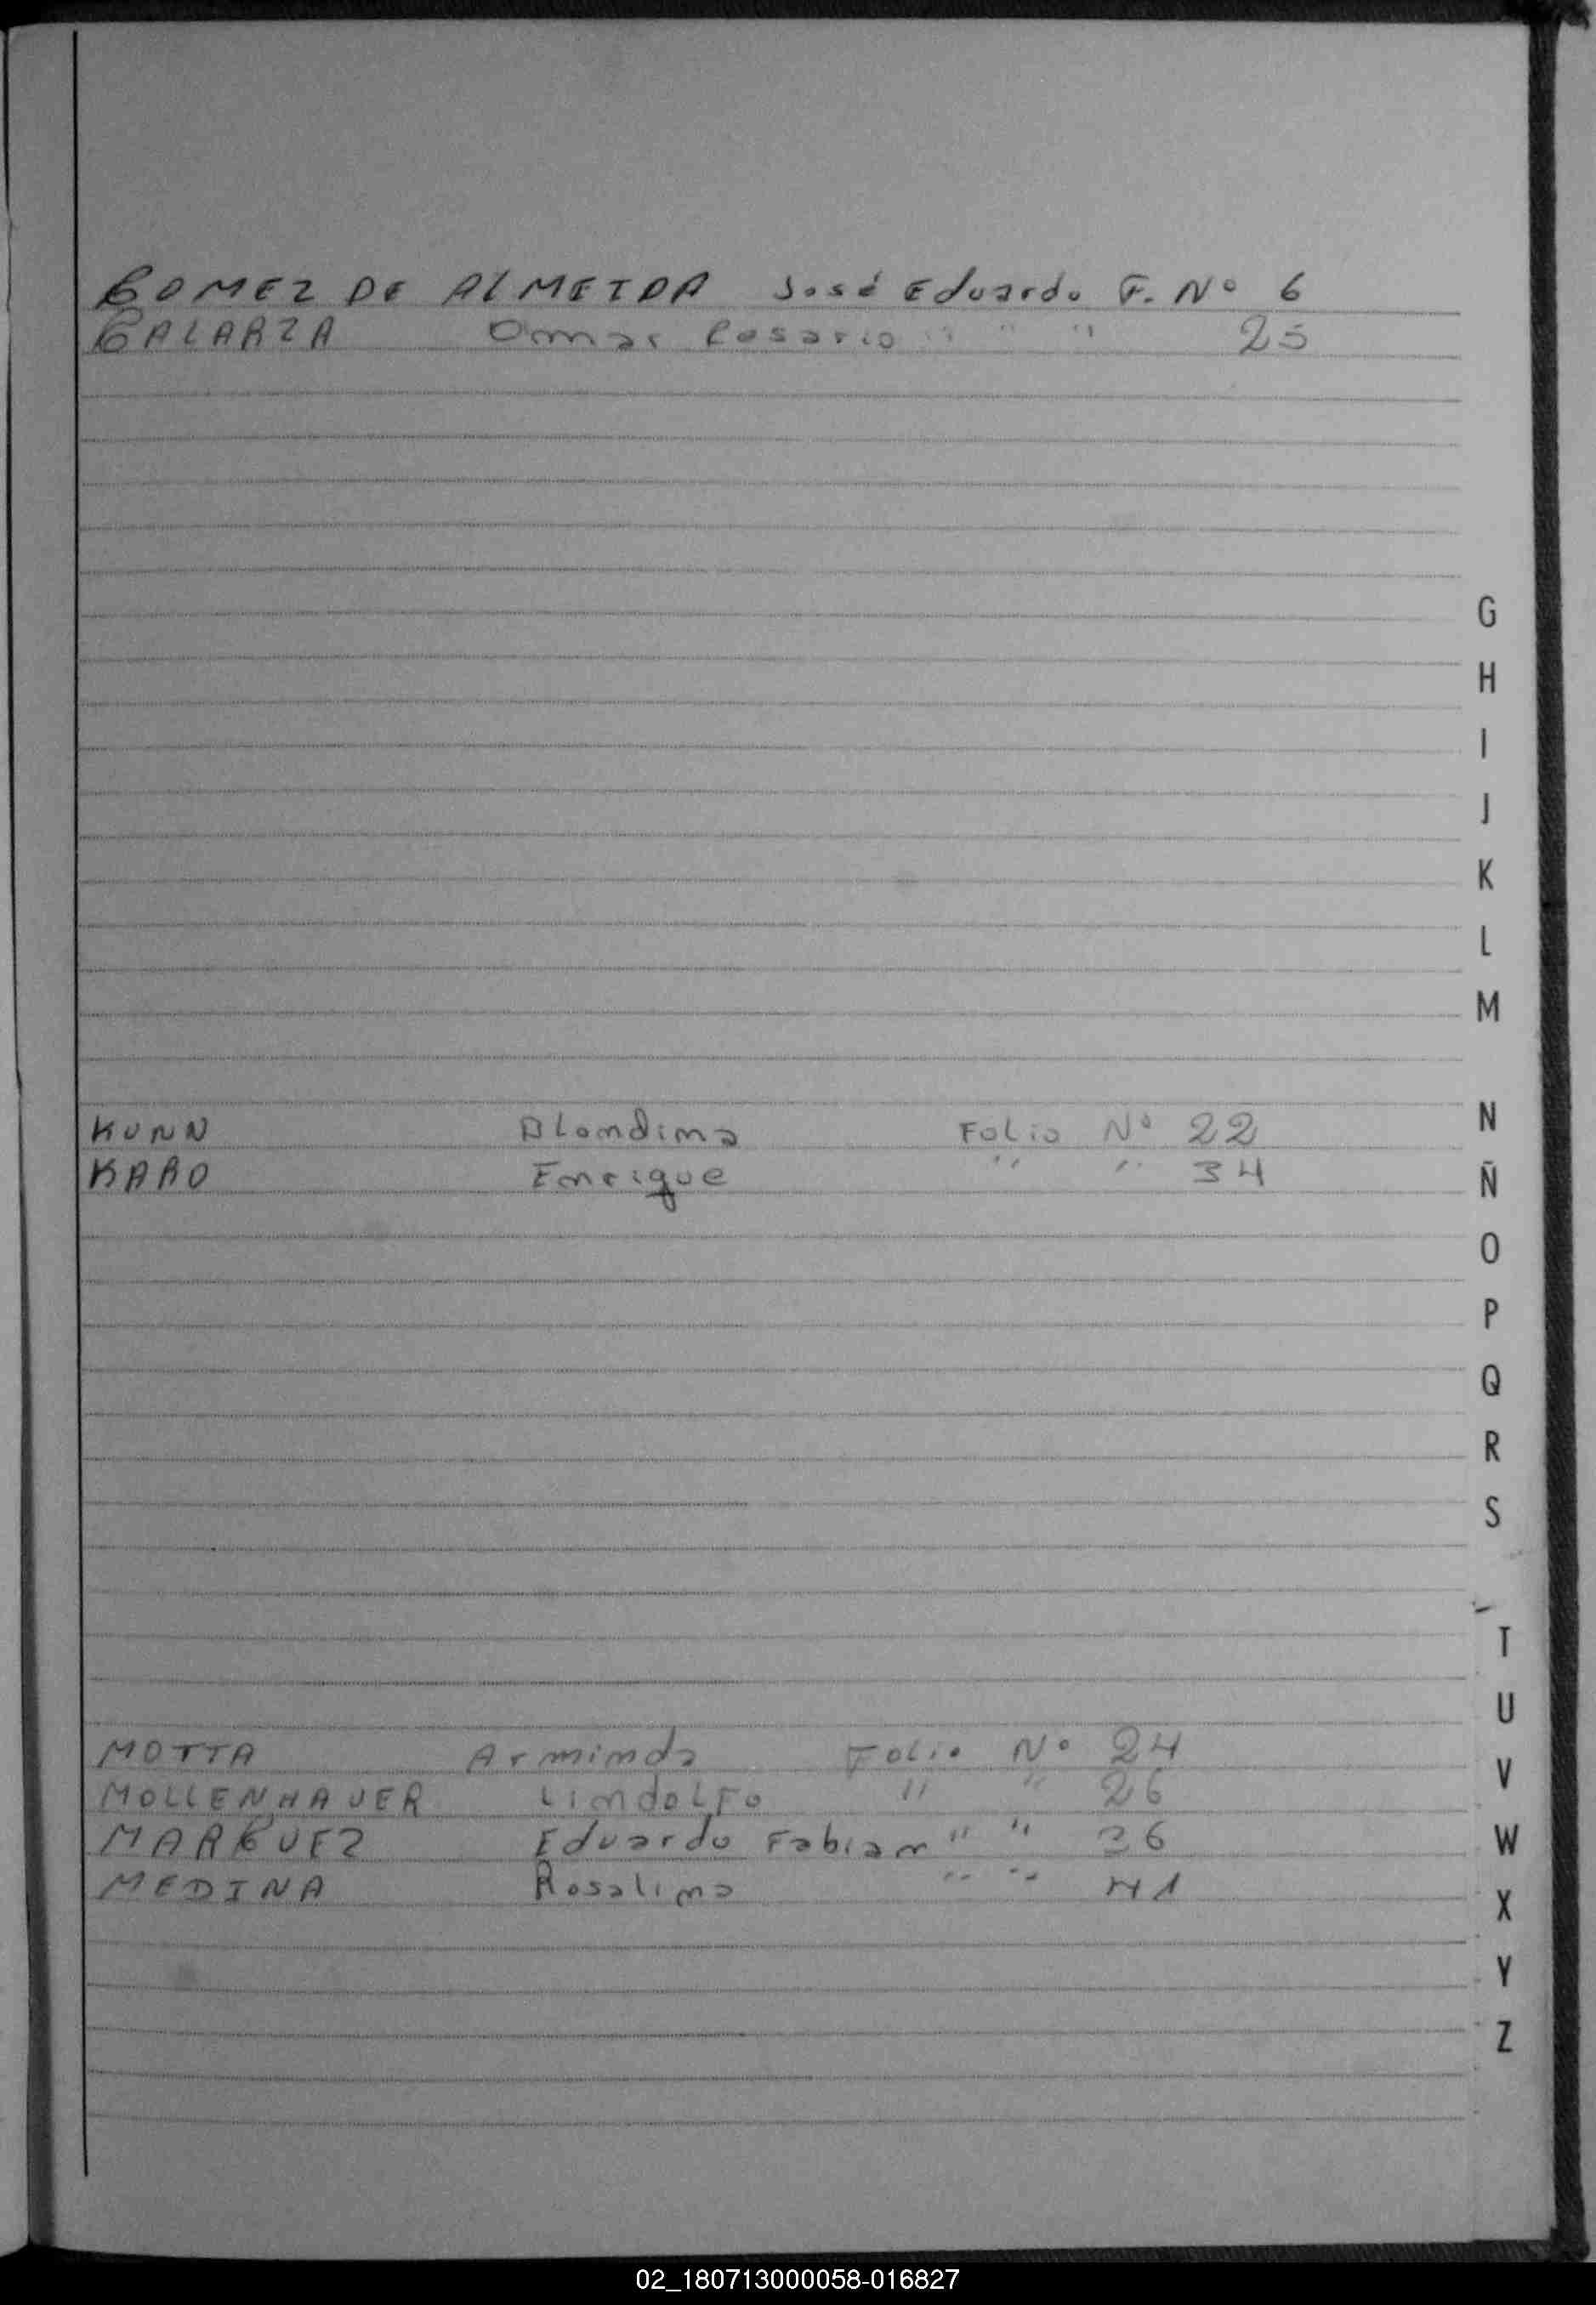 GOMEZ DE ALMEIDA José Eduardo F. Nº 6
GALARZA Omar Rosario " " " 25
G
H
I
J
K
L
M
KUNN Blondina Folio Nº 22
N
KARO Enrique " " 34
Ñ
O
P
Q
R
S
T
U
MOTTA Arminda Folio Nº 24
V
MOLLENHAUER LindoLFo " " 26
MARGUEZ Eduardo Fabian " " 36
W
MEDINA Rosalina " " 41
X
Y
Z
02_180713000058-016827